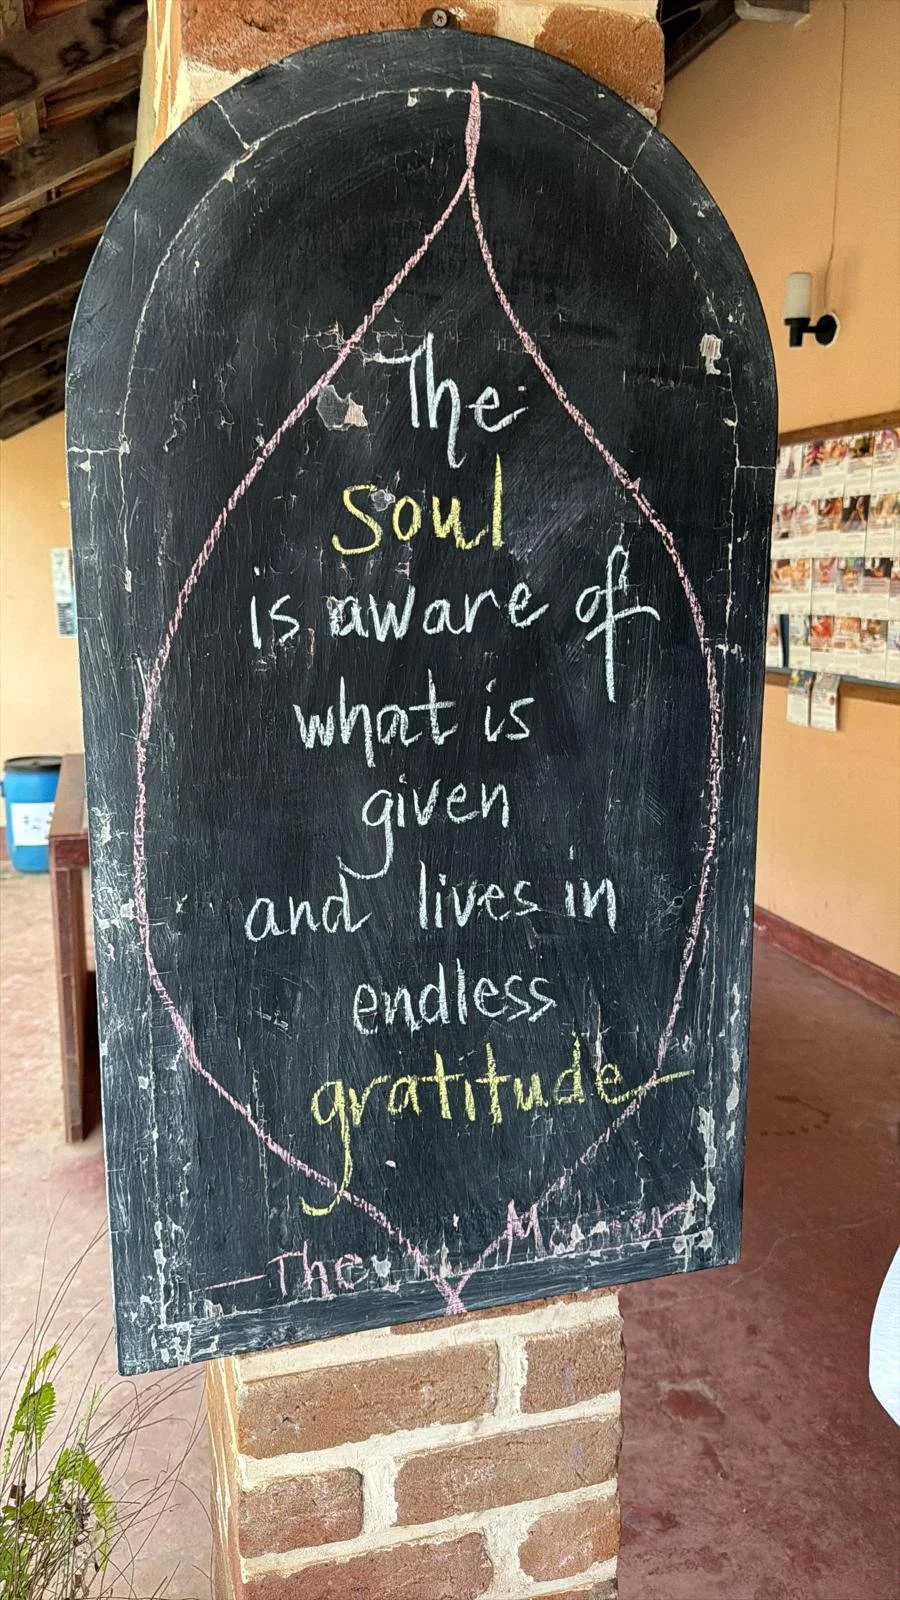 The
Soul
is aware of
what is
given
and lives in
endless
gratitude
— The